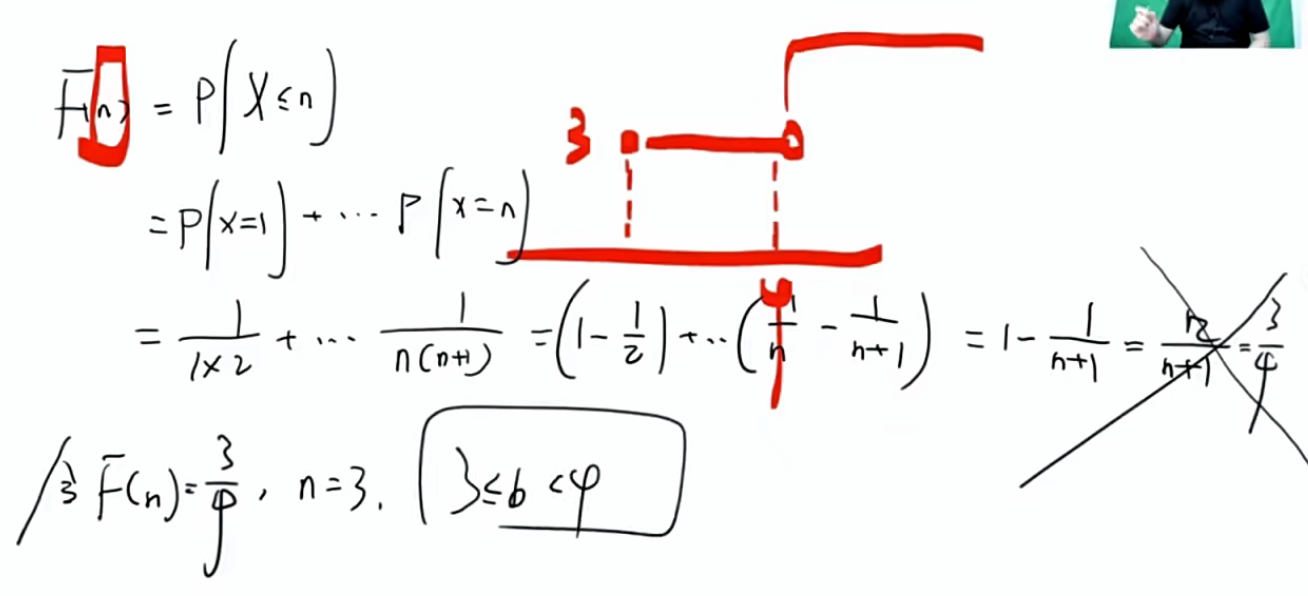 F(n) = P(X ≤ n)
3
= P(X=1) + ... P(X=n)
4
= 1/(1×2) + ... 1/(n(n+1)) = (1 - 1/2) + .. (1/n - 1/(n+1)) = 1 - 1/(n+1) = n/(n+1) = 3/4
F(n) = 3/4, n=3. 3 ≤ b < 4